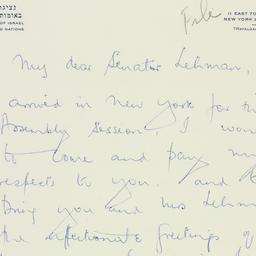 נציגו
באומות
OF ISRAEL
D NATIONS
File
11 EAST 70
NEW YORK 2
TRAFALGAR
My dear Senator Lehman,
arrived in New York for th
Assembly session, I woul
to come and pay my
respects to you. and
bring you and Mrs Lehm
the affectionate greetings of